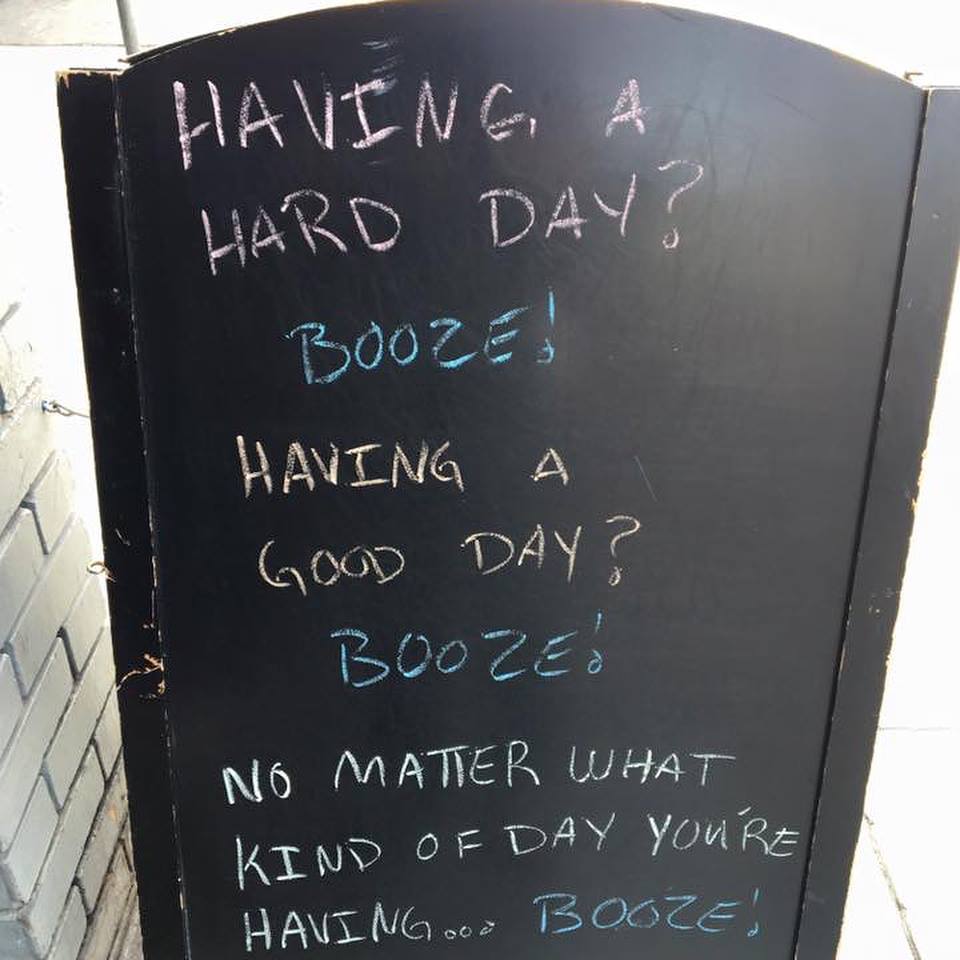 HAVING A
HARD DAY?
BOOZE!
HAVING A
GOOD DAY?
BOOZE!
NO MATTER WHAT
KIND OF DAY YOU'RE
HAVING... BOOZE!